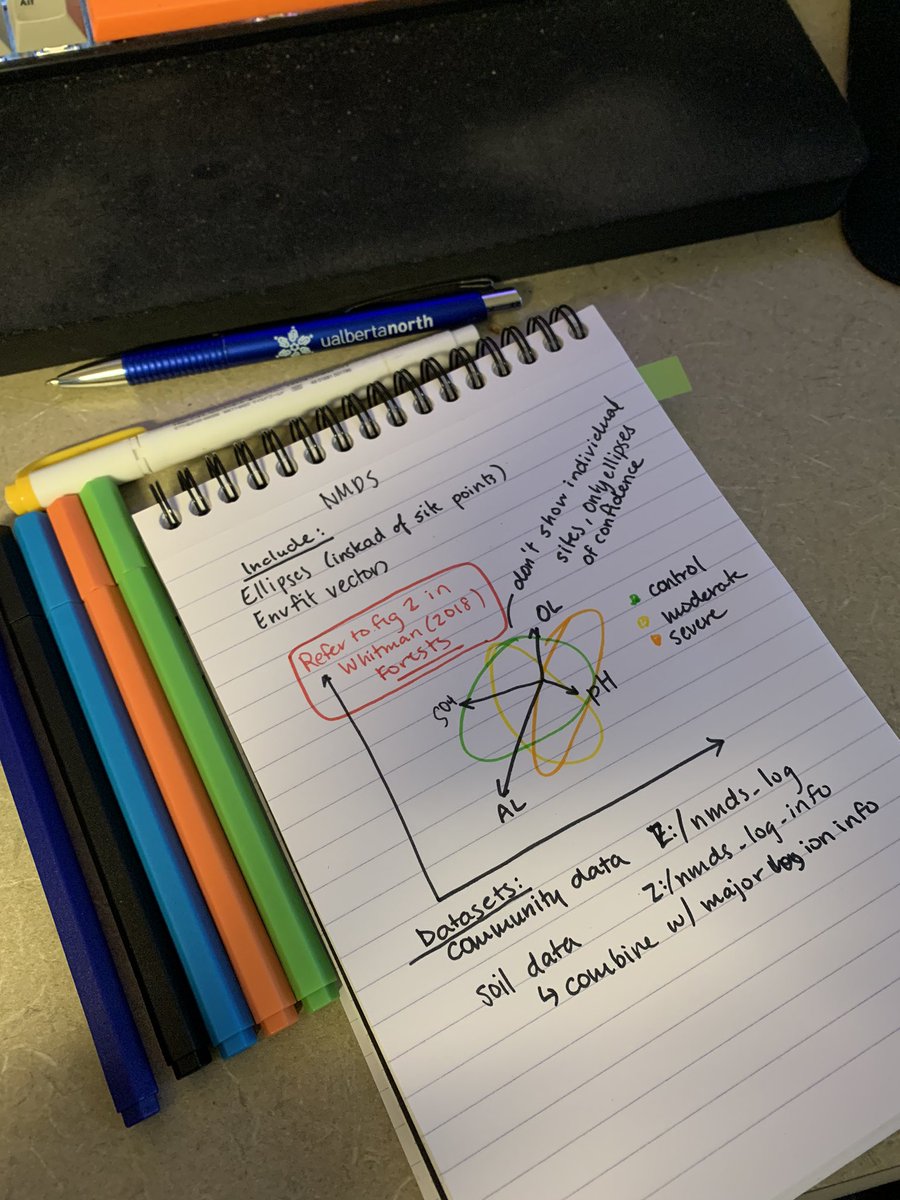 Alt
ualbertanorth
NMDS
Include:
Ellipses (instead of site points)
Envfit vectors
don't show individual
sites, only ellipses
of confidence
Refer to fig 2 in
Whitman (2018)
Forests
control
moderate
severe
OL
SO4
pH
AL
Datasets:
community data Z:/nmds_log
soil data Z:/nmds_log_info
↳ combine w/ major ion info